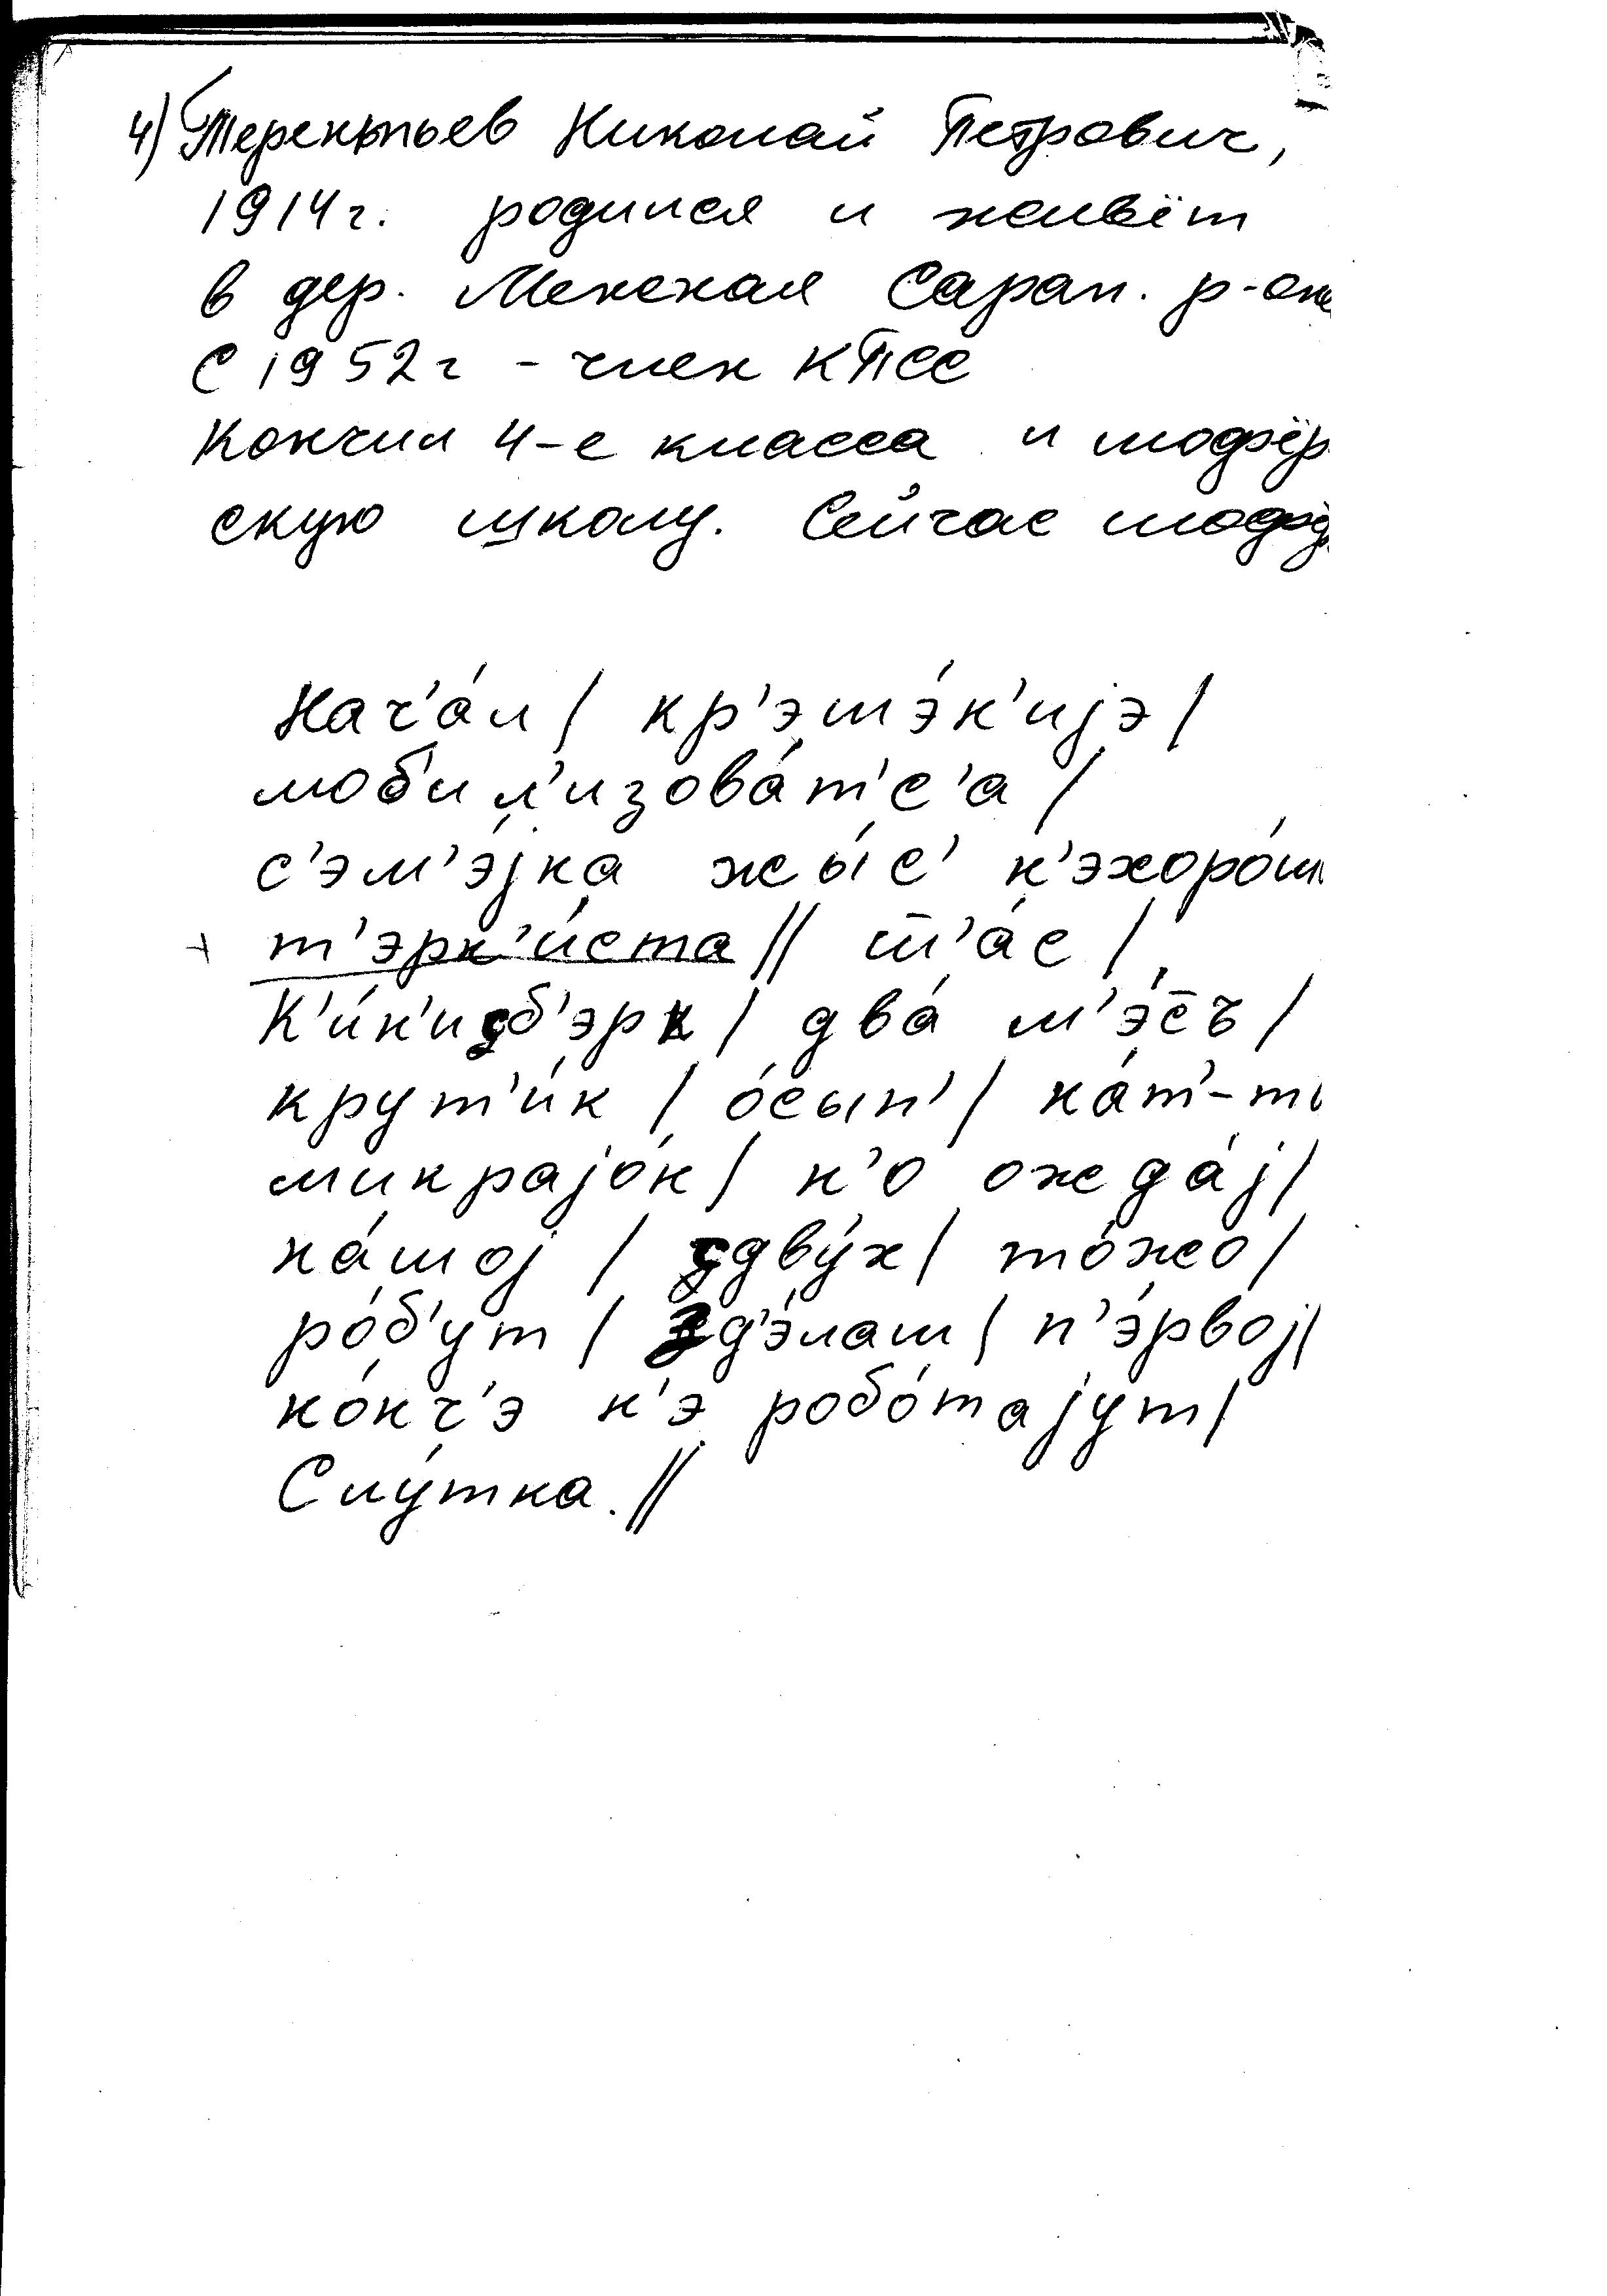 4) Терентьев Николай Петрович,
1914 г. родился и живёт
в дер. Менская Сарап. р-она
С 1952 г - член КПСС
Кончил 4-е класса и шофёр
скую школу. Сейчас
Нач'а́л / кр'эшэ́н'иjэ /
моб'ил'изова́т'с'а /
с'эм'э́jка жы́с' н'эхоро́ш
+ т'эрн'и́ста // т̄'а́с /
К'и́н'изб'эрк / два́ м'э́с̄ъ /
крут'и́к / о́сып' / на́т'-то
микраjо́н / н'о ождáj /
на́шоj / здву́х / то́жо /
ро́б'ут / зд'э́лаш / п'э́рвоj /
но́нч'э н'э робо́таjут /
Слу́тка. //